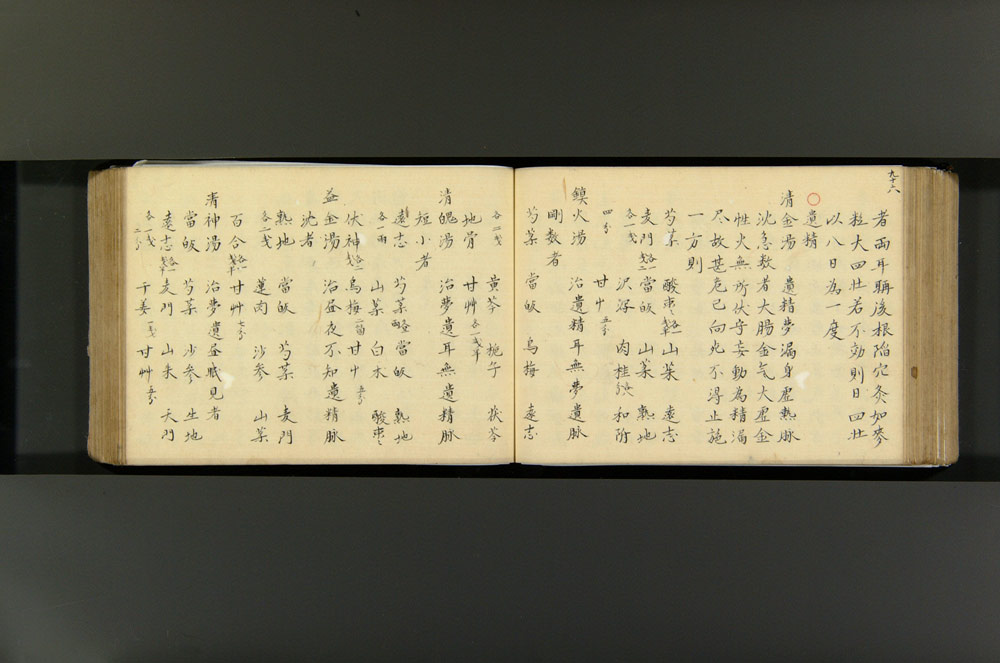 九十六
者両耳聤後根陥穴灸如麥
粒大四壮若不効則日四壮
以八日為一度
○遺精
清金湯 遺精夢漏身虛熱脉
沈急数者大腸金气大虛金
性火無所伏守妄動為精漏
尽故甚危已向死不淂止施
一方則
芍薬 酸棗 山薬 遠志
麦門 當皈 山薬 熟地
各一戋 沢泻 肉桂 和附
四分 甘艸 五分
鎮火湯 治遺精耳無夢遺脉
剛数者
芍薬 當皈 烏梅 遠志
各二戋 黄芩 梔子 茯苓
地骨 甘艸 各一戋半
清魄湯 治夢遺耳無遺精脉
短小者
遠志 芍薬 當皈 熟地
各一両 山薬 白朮 酸棗
伏神 烏梅 甘艸 五分
益金湯 治昼夜不知遺精脉
沈者
熟地 當皈 芍薬 麦門
各二戋 蓮肉 沙参 山薬
百合 甘艸 七分
清神湯 治夢遺昼眠見者
當皈 芍薬 沙参 生地
遠志 麦門 山朱 天門
各一戋二分 干姜 甘艸 五分